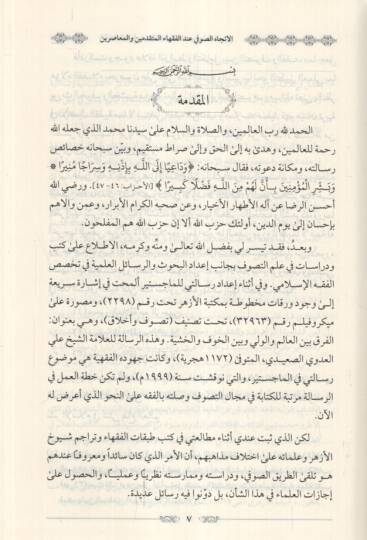 الاتجاه الصوفي عند الفقهاء المتقدمين والمعاصرين
بسم الله الرحمن الرحيم
المقدمة
الحمد لله رب العالمين، والصلاة والسلام على سيدنا محمد الذي جعله الله
رحمة للعالمين، وهدى به إلى الحق وإلى صراط مستقيم، وبيّن سبحانه خصائص
رسالته، ومكانة دعوته، فقال سبحانه: ﴿وَدَاعِيًا إِلَى اللَّهِ بِإِذْنِهِ وَسِرَاجًا مُنِيرًا *
وَبَشِّرِ الْمُؤْمِنِينَ بِأَنَّ لَهُمْ مِنَ اللَّهِ فَضْلًا كَبِيرًا﴾ [الأحزاب: ٤٦-٤٧]. ورضي الله
أحسن الرضا عن آله الأطهار الأخيار، وعن صحبه الكرام الأبرار، وعمن والاهم
بإحسان إلى يوم الدين، أولئك حزب الله ألا إن حزب الله هم المفلحون.
وبعدُ، فقد تيسر لي بفضل الله تعالى ومنّه وكرمه، الاطلاع على كتب
ودراسات في علم التصوف بجانب إعداد البحوث والرسائل العلمية في تخصص
الفقه الإسلامي. وفي أثناء إعداد رسالتي للماجستير ألمحت في إشارة سريعة
إلى وجود ورقات مخطوطة بمكتبة الأزهر تحت رقم (٢٢٩٨)، ومصورة على
ميكروفيلم رقم (٣٢٩٦٣)، تحت تصنيف (تصوف وأخلاق)، وهي بعنوان:
الفرق بين العالم والولي وبين الخوف والخشية. وهذه الرسالة للعلامة الشيخ علي
العدوي الصعيدي، المتوفى (١١٧٢هجرية)، وكانت جهوده الفقهية هي موضوع
رسالتي في الماجستير، والتي نوقشت سنة (١٩٩٩م)، ولم تكن خطة العمل في
الرسالة مرتبة للكتابة في مجال التصوف وصلته بالفقه على النحو الذي أعرض له
الآن.
لكن الذي ثبت عندي أثناء مطالعتي في كتب طبقات الفقهاء وتراجم شيوخ
الأزهر وعلمائه على اختلاف مذاهبهم، أن الأمر الذي كان سائدًا ومعروفًا عندهم
هو تلقي الطريق الصوفي، ودراسته وممارسته نظريًّا وعمليًّا، والحصول على
إجازات العلماء في هذا الشأن، بل دوّنوا فيه رسائل عديدة.
٧